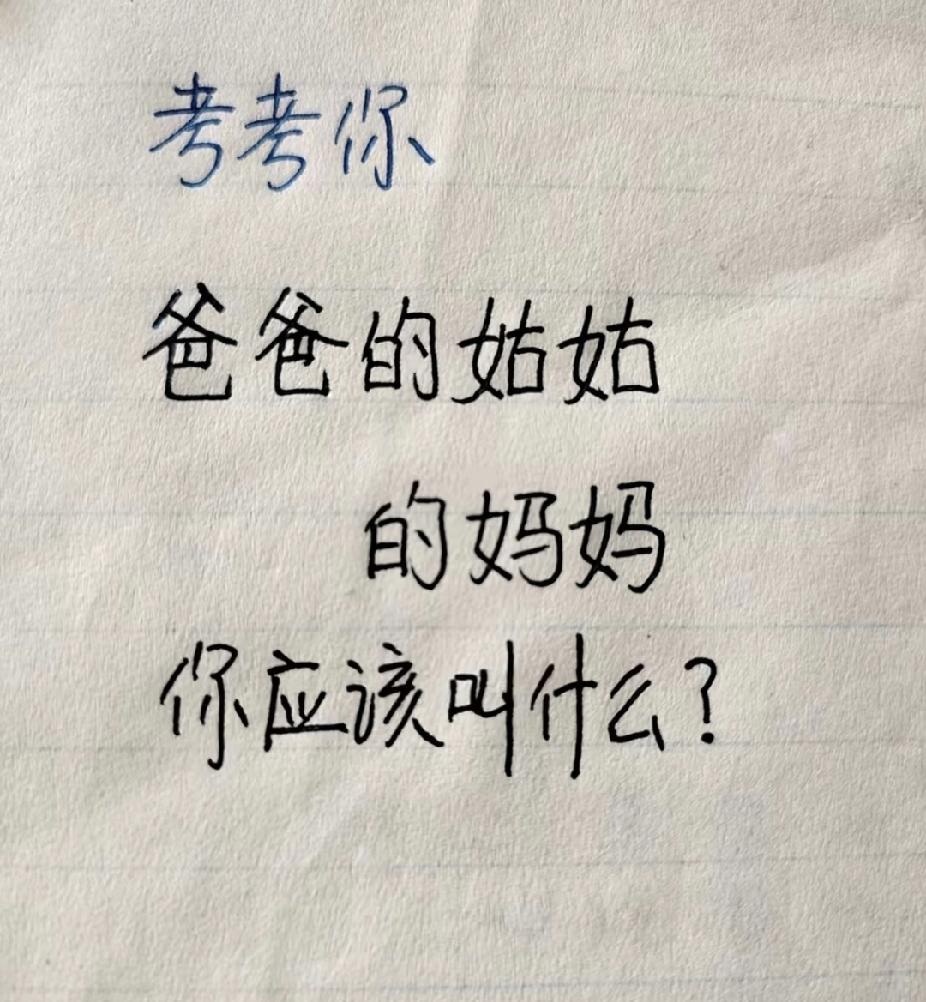 考考你
爸爸的姑姑
的妈妈
你应该叫什么?